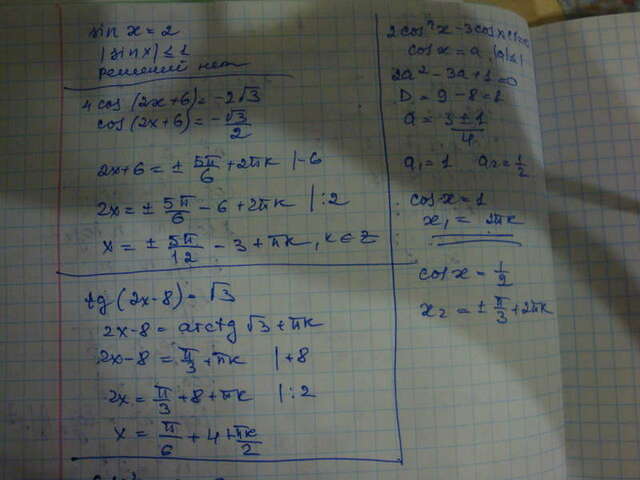 sin x = 2
|sin x| ≤ 1
решений нет
4 cos (2x+6) = -2√3
cos (2x+6) = -√3/2
2x+6 = ± 5π/6 + 2πк |-6
2x = ± 5π/6 - 6 + 2πк |:2
x = ± 5π/12 - 3 + πк, к ∈ z
tg (2x-8) = √3
2x-8 = arctg √3 + πк
2x-8 = π/3 + πк |+8
2x = π/3 + 8 + πк |:2
x = π/6 + 4 + πк/2
2cos²x - 3cosx+1=0
cosx = a, |a|≤1
2a² - 3a + 1 = 0
D = 9 - 8 = 1
a = 3±1/4
a₁ = 1 a₂ = 1/2
cosx = 1
x₁ = 2πк
cosx = 1/2
x₂ = ± π/3 + 2πк